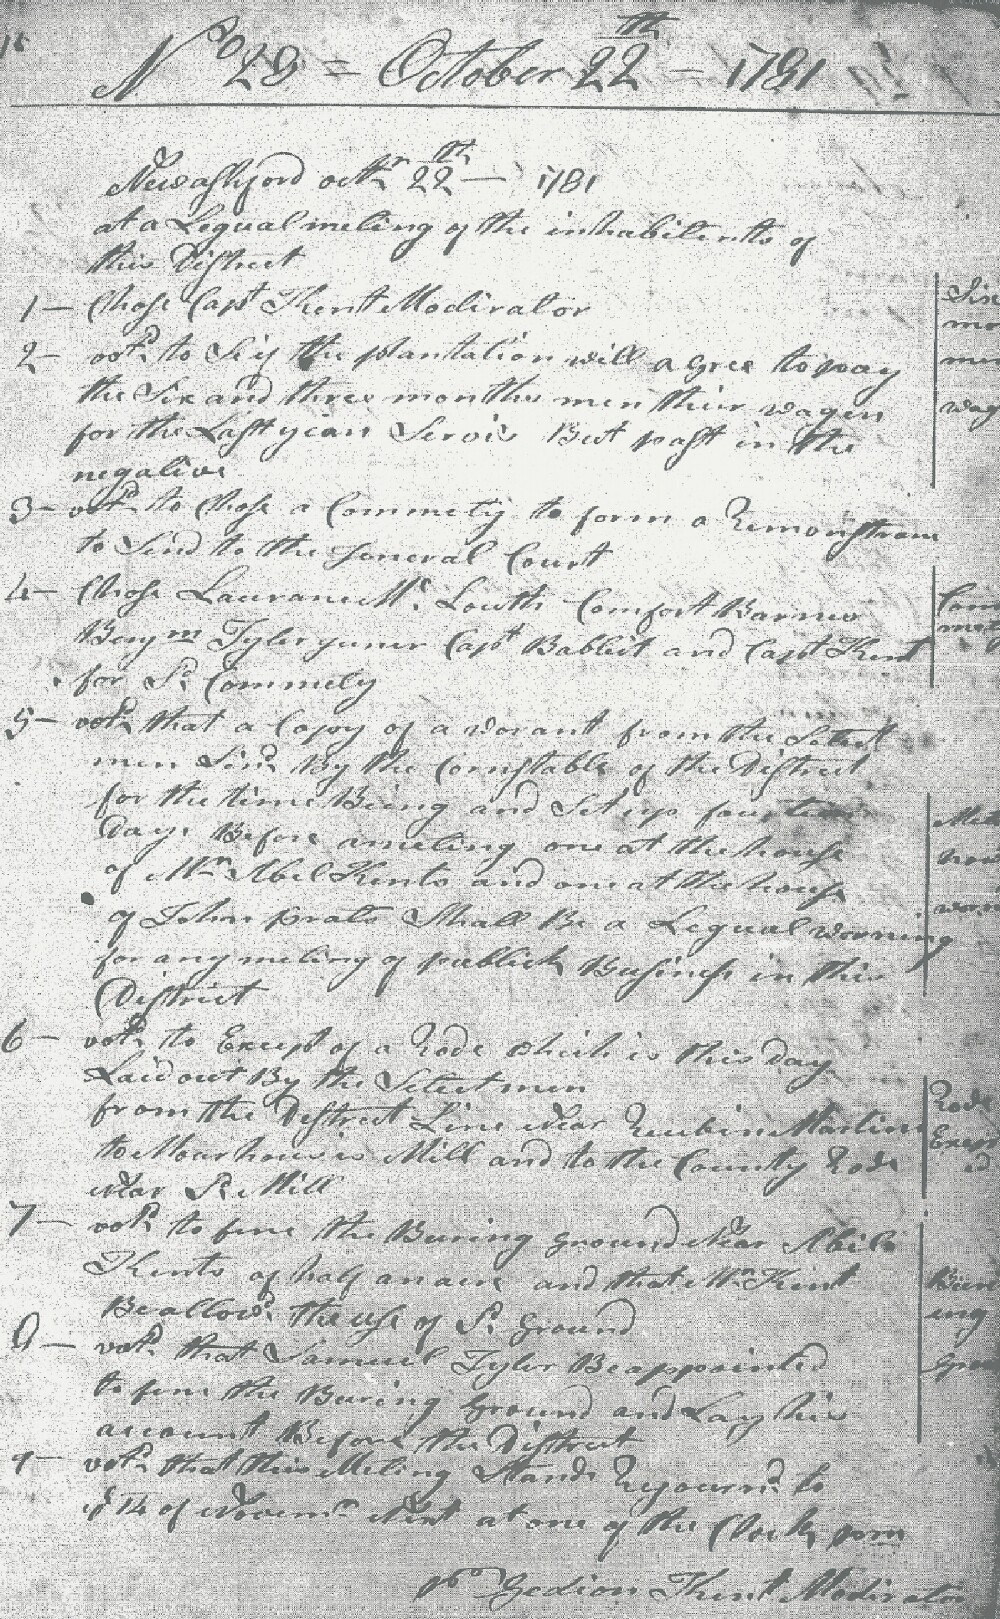 No 28 = October 22th - 1781
Newashford octr 22th - 1781
at a Lequal meting of the inhabitents of
this District
1 - Chose Capt Kent Modirator
2 - votd to Se if the plantation will agree to pay
the Six and three months men their wagen
for the Last year Servis But past in the
negative
3 - votd to Chose a Commety to form a Remonstranc
to Send to the Jeneral Court
4 - Chose Mr Louth Comfort Barnes
Benjm Tyler juner Capt Babbit and Capt Kent
for Sd Commety
5 - votd that a Copy of a worant from the Select
men Sind By the Cornstable of the District
for the time Being and Set up fourteen
Days Before a meting one at the house
of Mr Abel Kents and one at the house
of John prats Shall Be a Lequal worning
for any meting of publick Business in this
District
6 - votd to Except of a Rode which is this day
Laid out By the Select men
from the District Line Near Reubin Martins
to Mourhouses Mill and to the County Rode
Near Sd Mill
7 - votd to fene the Buring ground Near Abils
Kents of half an acre and that Mr Kent
Be allowd the use of Sd ground
8 - votd that Samuel Tyler Be appointed
to fene the Buring Ground and Lay his
account Before the District
9 - votd that this Meting Stands Rejournd to
ye 14 of Novemr Next at one of the Clock pm
pr Gedion Kent Modirator
Six
mo
men
wag
Com
met
Met
how
worn
Rode
Exept
ed
Buri
ing
Grou